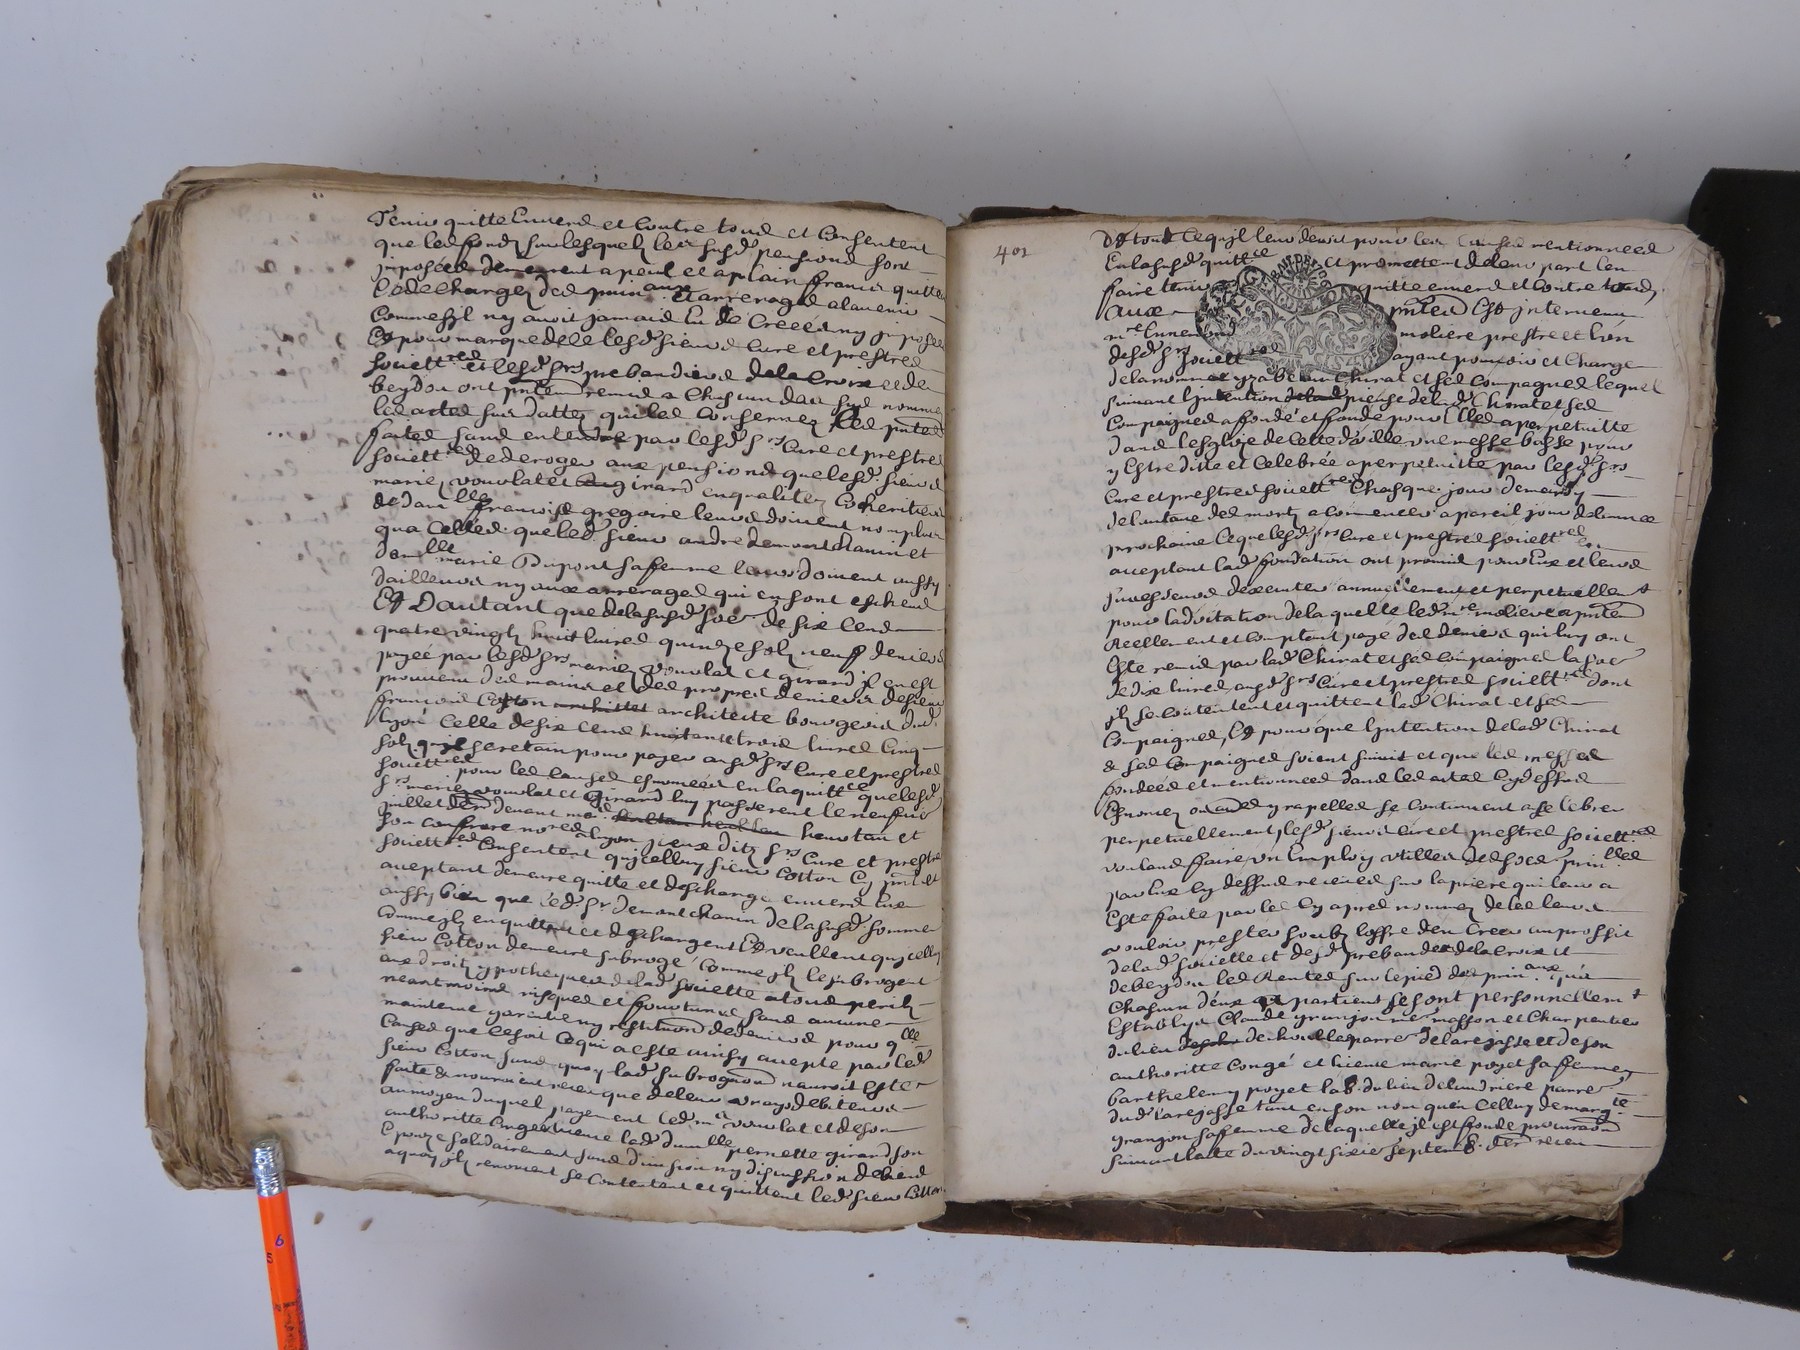 Tenir quitte Envers et Contre tous et Consentent
que les fondz sur lesquelz les susd pensions sont
imposées demeurent a peur et a plain francs quittes
et deschargez des prin aux et arrerages a lavenir
Comme sil ny avoit jamais Eu de Creées ny imposées
Et pour marque de ce lesd sieurs Cure et prestres
societt res et lesd srs prebandiers de la Croix et de
beydon ont pntem remis a Chascun des susd nommes
les actes sus dattez qui les Consernes les pntes
faites sans entendre par lesd srs Cure et prestres
societt res de deroger aux pensions que lesd sieurs
marie, vouvlat et girard en qualitez Coheritiers
de dam lle francoise gregoire leurs doivent non plus
qua Celles que led sieur andre demontchanin et
dam lle marie Dupont sa femme leurs doivent aussy
dailleurs ny aux arrerages qui en sont escheus
Et Dautant que de la susd soe de six Cens
quatre vingtz huit livres quinze solz neuf deniers
payée par lesd srs marie, vouvlat et girard il en est
provenu des mains et des propres deniers de sieur
francois Cotton architecte bourgeois dud
lyon Celle de six Cens huitante trois livres Cinq
solz quil se retain pour payer ausd srs Cure et prestres
societt res pour les Causes esnoncées en la quitt ce que lesd
srs marie, vouvlat et Girard luy passerent le neufvie
juillet der devant moy heurtau et
son confrere no res a lyon jceux ditz srs Cure et prestres
societt res Consentent quicelluy sieur Cotton Cy pnt et
aceptant demeure quitte et descharge envers Eux
aussy bien que led sr demontchanin de la susd somme
Comme ilz en quittent et deschargent Et veullent quicelluy
sieur Cotton demeure subrogé Comme ilz le subrogent
aux droitz ypotheques de lad societte a tous perilz
neantmoins risques et fortunes sans aucune
maintenue garantie ny restitution de deniers pour q lle
Causes que Ce soit Ce qui a este ainsy accepte par led
sieur Cotton sans quoy lad subrogaon nauroit Este
faite & nauroient receu que de leurs vrays debiteurs
au moyen duquel payement led m r vouvlat et de son
authoritte Congé licence lad dam lle pernette girard son
Epouze solidairement sans division ny discussion de biens
a quoy ilz renoncent se Contentent et quittent led sieur Cotton
401
De tout Ce quil leur devoit pour les Causes mentionnees
En la susd quitt ce et promettent de leur part len
faire tenir quitte envers et Contre tous
Aux pntes Est jntervenu
m re Ennemond moliere prestre et lun
desd srs societt res ayant pouvoir et Charge
de la nommée yzabeau Chirat et ses Compagnes lequel
suivant lintention pieuse de lad Chirat et ses
Compaignes a fondé et fonde pour Elles a perpetuitte
dans lesglize de Cette d ville une messe basse pour
y Estre ditte et Celebrée a perpetuitte par lesd srs
Cure et prestres societt res Chasque jour de mardy
de loctave des mortz a Commencer a pareil jour de lannee
prochaine Ce que lesd srs Cure et prestres societt res
aceptant lad fondation ont promis pour Eux et leurs
successeurs dexecuter annuellement et perpetuellem t
pour la dotation de laquelle led m re moliere a pntem
Reellement et Comptant payé des deniers qui luy ont
Este remis par lad Chirat et ses compaignes la soe
de dix livres, ausd srs Cure et prestres societt res dont
ilz se contentent et quittent lad Chirat et ses
Compaignes, Et pour que lintention de lad Chirat
& ses Compaignes soient suivie et que les messes
fondées et mentionnees dans les actes Cy dessus
Esnoncez ou en Ceux y rapelles se Continuent a se Celebrer
perpetuellement, lesd sieurs Cure et prestres societt res
voulans faire un Employ utilles des soes prin lles
par Eux Cy dessus receues sur la priere qui leur a
Este faite par les Cy apres nommez de les leurs
vouloir prester soubz loffre den Creer au proffit
de lad societte et desd prebandes de la Croix et
de beydon les Rentes sur le pied des prin aux qu'a
Chascun deux apartient se sont personnellem t
Establys Claude granjon me masson et Charpentier
du lieu de houtte parre de larejasse et de son
authoritte Congé et licence marie poyet sa femme
barthelemy poyet lab. du lieu de landriere parre
dud larejasse tant en son nom quen Celluy de marg te
grangon sa femme de laquelle il est fondé procuraon
suivant lacte du vingt sixie septemb. der receu